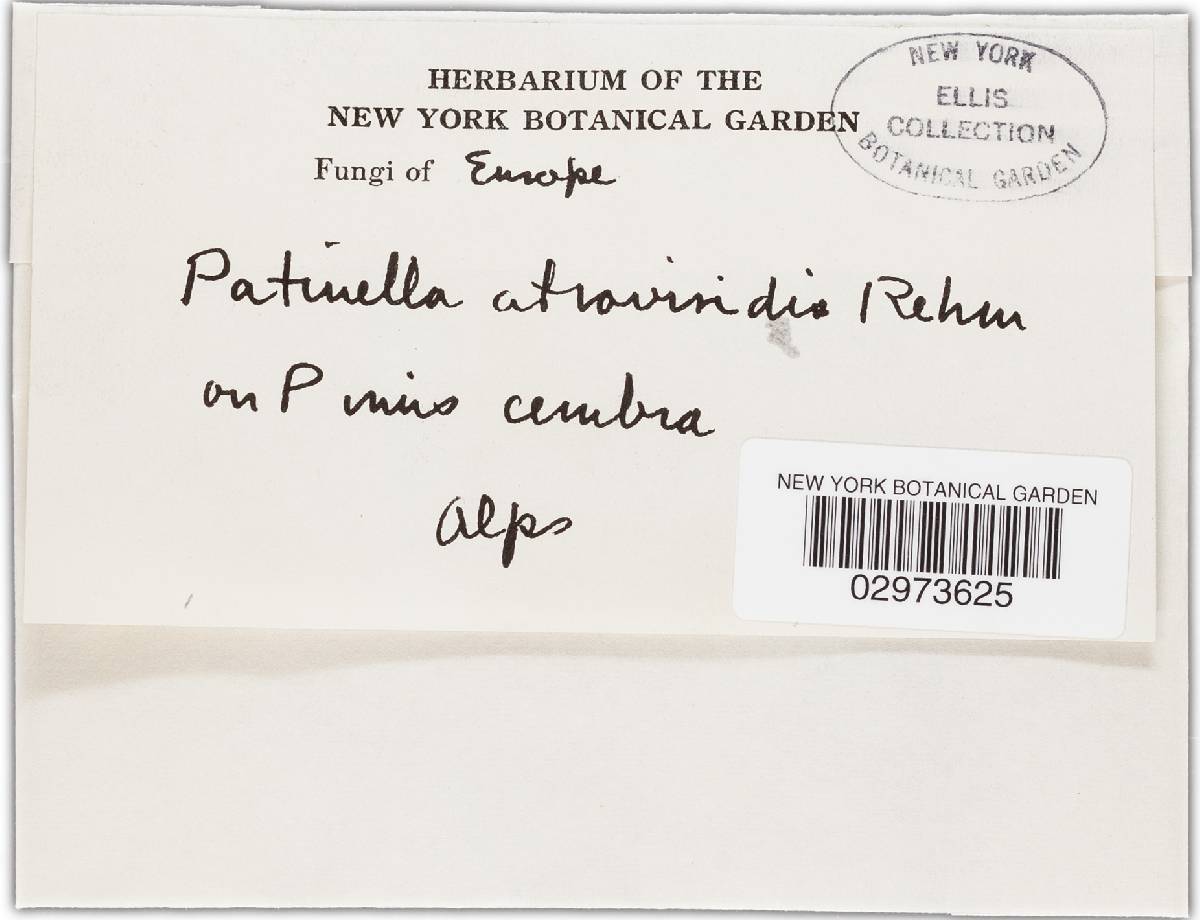 HERBARIUM OF THE
NEW YORK BOTANICAL GARDEN
Fungi of Europe
NEW YORK
ELLIS
COLLECTION
BOTANICAL GARDEN
Patinella atroviridis Rehm
on Pinus cembra
Alps
NEW YORK BOTANICAL GARDEN
02973625